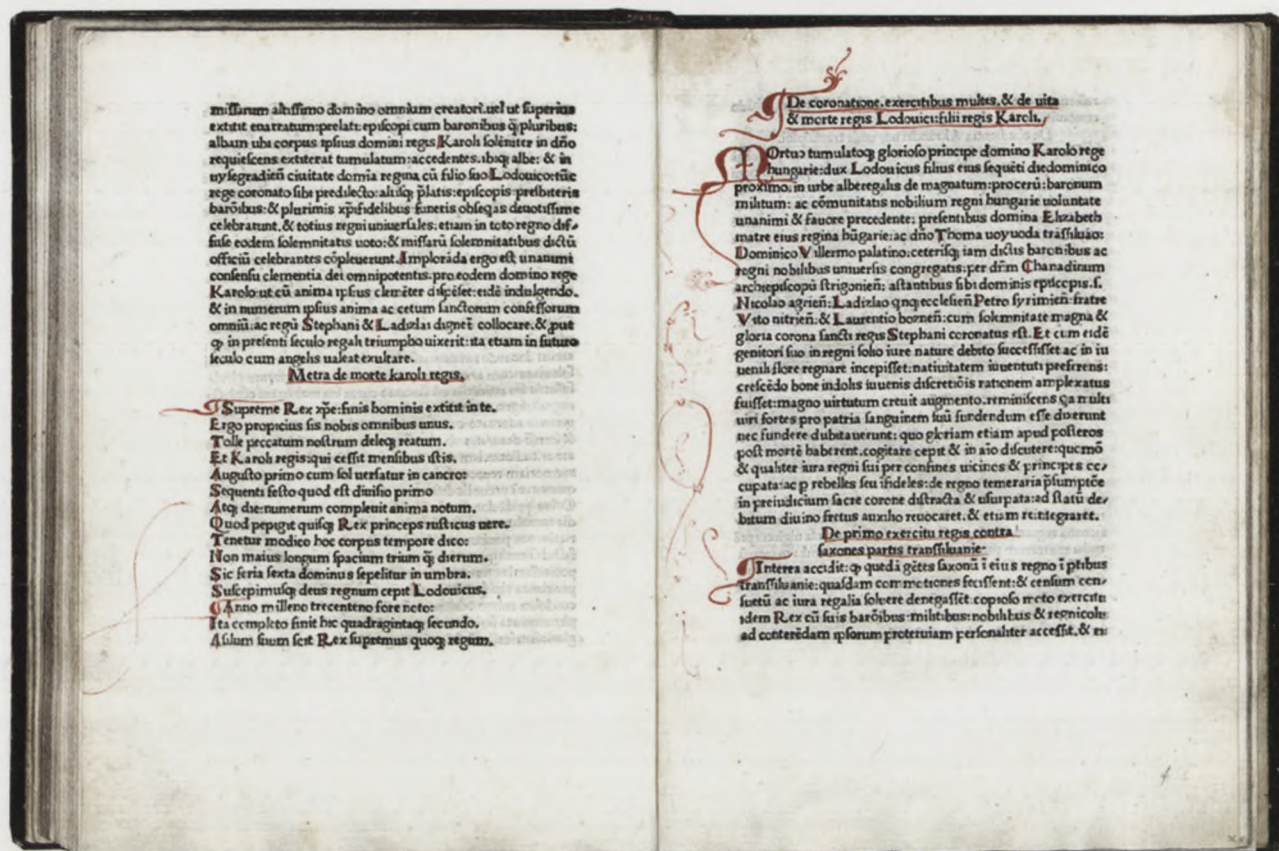 missarum altissimo domino omnium creatori. uel ut superius
extitit enarratum: prelati: episcopi cum baronibus q̃ pluribus:
albam ubi corpus ipsius domini regis Karoli solẽniter in dño
requiescens extiterat tumulatum: accedentes. ibiqꝫ albe: & in
uysegradieñ ciuitate domĩa regina cũ filio suo Lodouico: tũc
rege coronato sibi predilecto: alijsqꝫ p̃latis: episcopis presbiteris
barõibus: & plurimis xp̃ifidelibus funeris obseq̃as deuotissime
celebrarunt. & totius regni uniuersales: etiam in toto regno dif-
fuse eodem solemnitatis uoto: & missarũ solemnitatibus dictũ
officiũ celebrantes cõpleuerunt. Implorãda ergo est unanimi
consensu clementia dei omnipotentis: pro eodem domino rege
Karolo: ut cũ anima ipsius clemẽter dispẽset: eidẽ indulgendo.
& in numerum ipsius anima ac cetum sanctorum confessorum
omniũ: ac regũ Stephani & Ladizlai dignet̃ collocare. & put
qꝫ in presenti seculo regali triumpho uixerit: ita etiam in futuro
seculo cum angelis ualeat exultare.
Metra de morte karoli regis.
Supreme Rex xp̃e: finis hominis extitit in te.
Ergo propicius sis nobis omnibus unus.
Tolle peccatum nostrum deleqꝫ reatum.
Et Karoli regis: qui cessit mensibus istis.
Augusto primo cum sol uersatur in cancro:
Sequenti festo quod est diuisio primo
Atqꝫ die: numerum compleuit anima notum.
Quod pepigit quisqꝫ Rex princeps rusticus uere.
Tenetur modico hoc corpus tempore dico:
Non maius longum spacium trium q̃ꝫ dierum.
Sic feria sexta dominus sepelitur in umbra.
Suscepimusqꝫ deus regnum cepit Lodouicus.
Anno milleno trecenteno fore noto:
Ita completo finit hic quadragintaqꝫ secundo.
Asilum suum scit Rex supremus quoqꝫ regum.
De coronatione. exercitibus multis. & de uita
& morte regis Lodouici: filii regis Karoli.
MOrtuo tumulatoqꝫ glorioso principe domino Karolo rege
hungarie: dux Lodouicus filius eius sequẽti die dominico
proximo. in urbe alberegalis de magnatum: procerũ: baronum
militum: ac cõmunitatis nobilium regni hungarie uoluntate
unanimi & fauore precedente: presentibus domina Elizabeth
matre eius regina hũgarie: ac dño Thoma uoyuoda trãssiluão:
Dominico Villermo palatino: ceterisqꝫ iam dictis baronibus ac
regni nobilibus uniuersis congregatis: per dñm Chanadinum
archiepiscopũ strigonieñ: astantibus sibi dominis episcopis. s.
Nicolao agrieñ: Ladizlao qnqꝫ ecclesieñ Petro syrimieñ: fratre
Vito nitrieñ: & Laurentio bozneñ: cum solemnitate magna &
gloria corona sancti regis Stephani coronatus est. Et cum eidẽ
genitori suo in regni solio iure nature debito successisset ac in iu
uenili flore regnare incepisset: natiuitatem iuuentuti preferens:
crescẽdo bone indolis iuuenis discretiõis rationem amplexatus
fuisset: magno uirtutum creuit augmento. reminiscens q̃a multi
uiri fortes pro patria sanguinem suũ fundendum esse duxerunt
nec fundere dubitauerunt: quo gloriam etiam apud posteros
post mortẽ haberent. cogitare cepit & in aĩo discutere: quo mõ
& qualiter iura regni sui per confines uicinos & principes oc-
cupata: ac p rebelles seu ĩfideles: de regno temeraria p̃sumptiõe
in preiudicium sacre corone distracta & usurpata: ad statũ de-
bitum diuino fretus auxilio reuocaret. & etiam reintegraret.
De primo exercitu regis contra
saxones partis transsiluanie.
Interea accidit: qꝫ quedã gẽtes saxonũ ĩ eius regno ĩ ptibus
transsiluanie: quasdam commotiones fecissent: & censum con-
suetũ ac iura regalia soluere denegassẽt. copioso moto exercitu
idem Rex cũ suis barõibus: militibus: nobilibus & regnicolis
ad conterẽdam ipsorum proteruiam personaliter accessit. & in